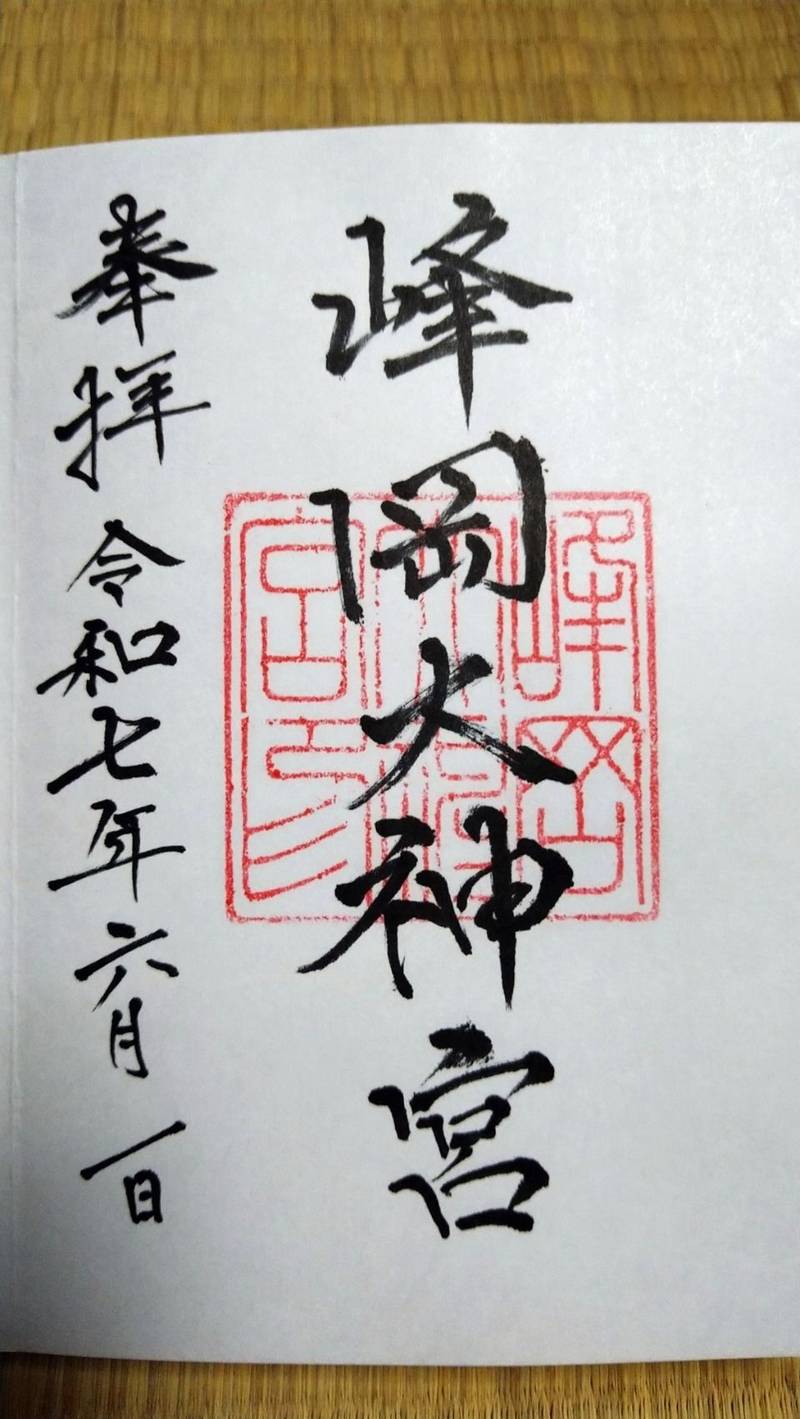 峰岡大神宮
奉拝 令和七年六月一日
峰岡
大神
宮印